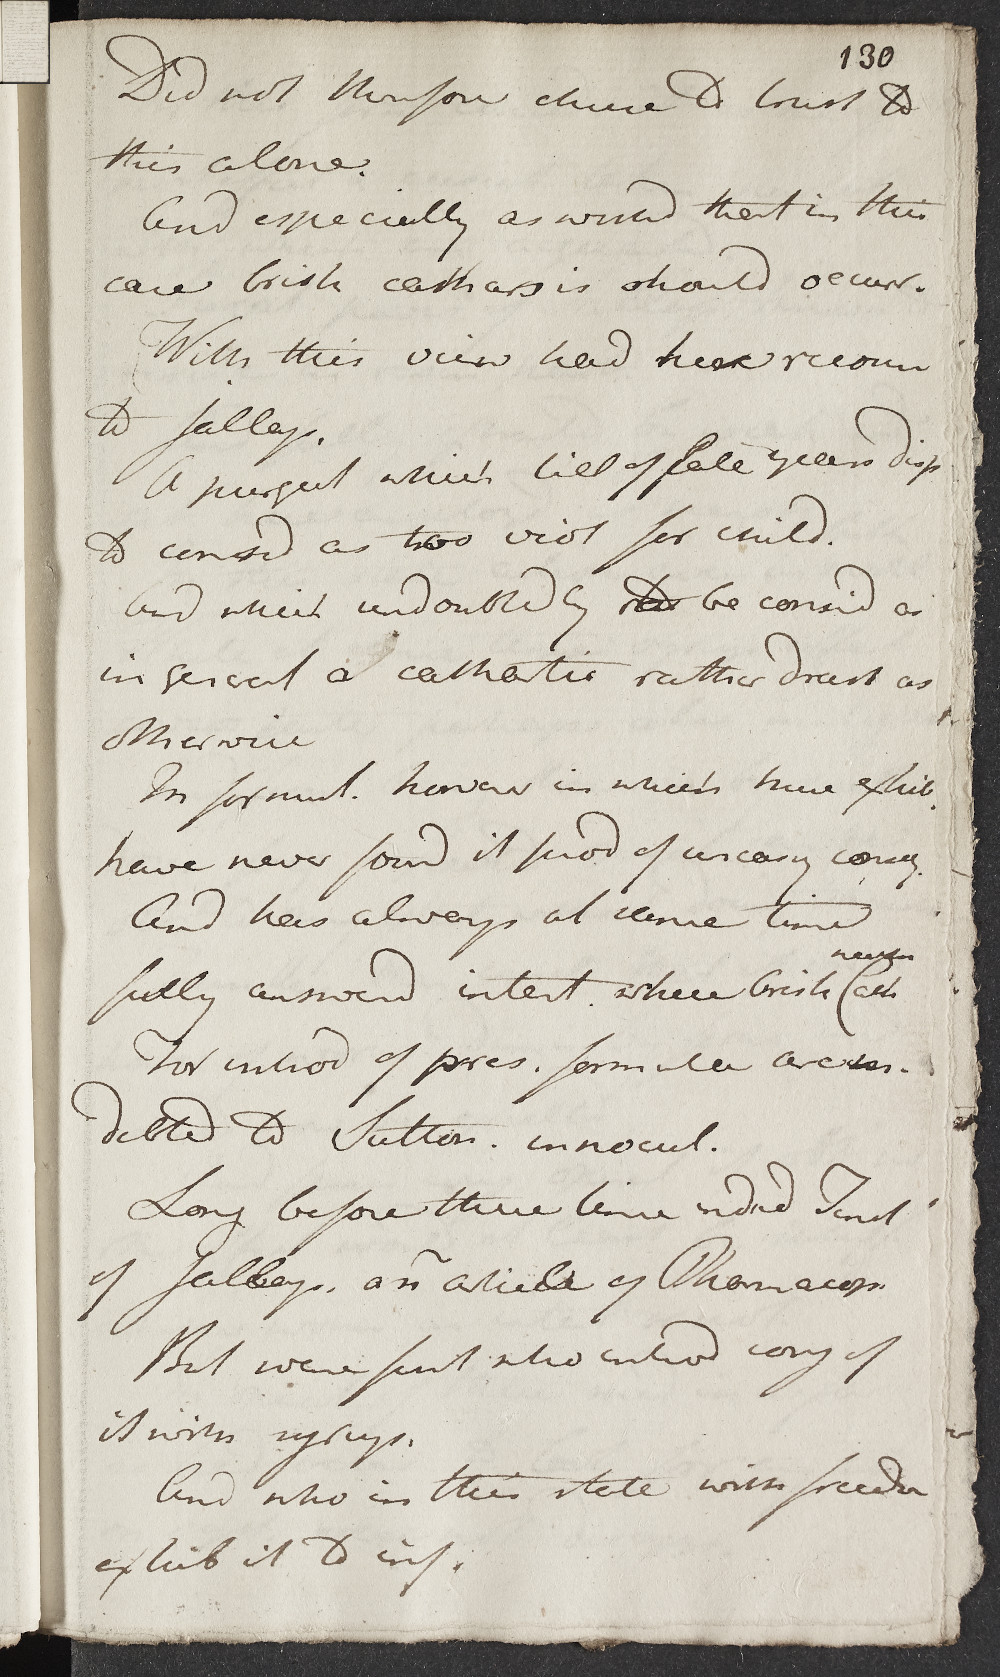 130
Did not therefore chuse to trust to
this alone.
And especially as wished that in this
case brisk catharsis should occurr.
With this view had here recour
to Jallap.
A purgat which till of late years disp
to consid as too viol for child.
And which undoubtedly to be consid as
in general a cathartic rather drast as
otherwise
In formul. however in which have exhib.
have never found it prod of uneasy conseq.
And has always at same time
fully answerd intent. where brisk
neces
Cath
For introd of pres. formulae are in.
debted to Sutton. innocul.
Long before there time indeed Tinct
of Jallap. an article of Pharmacop.
But were first who introd conj of
it with syrup.
And who in this state with freedm
exhib it to inf.